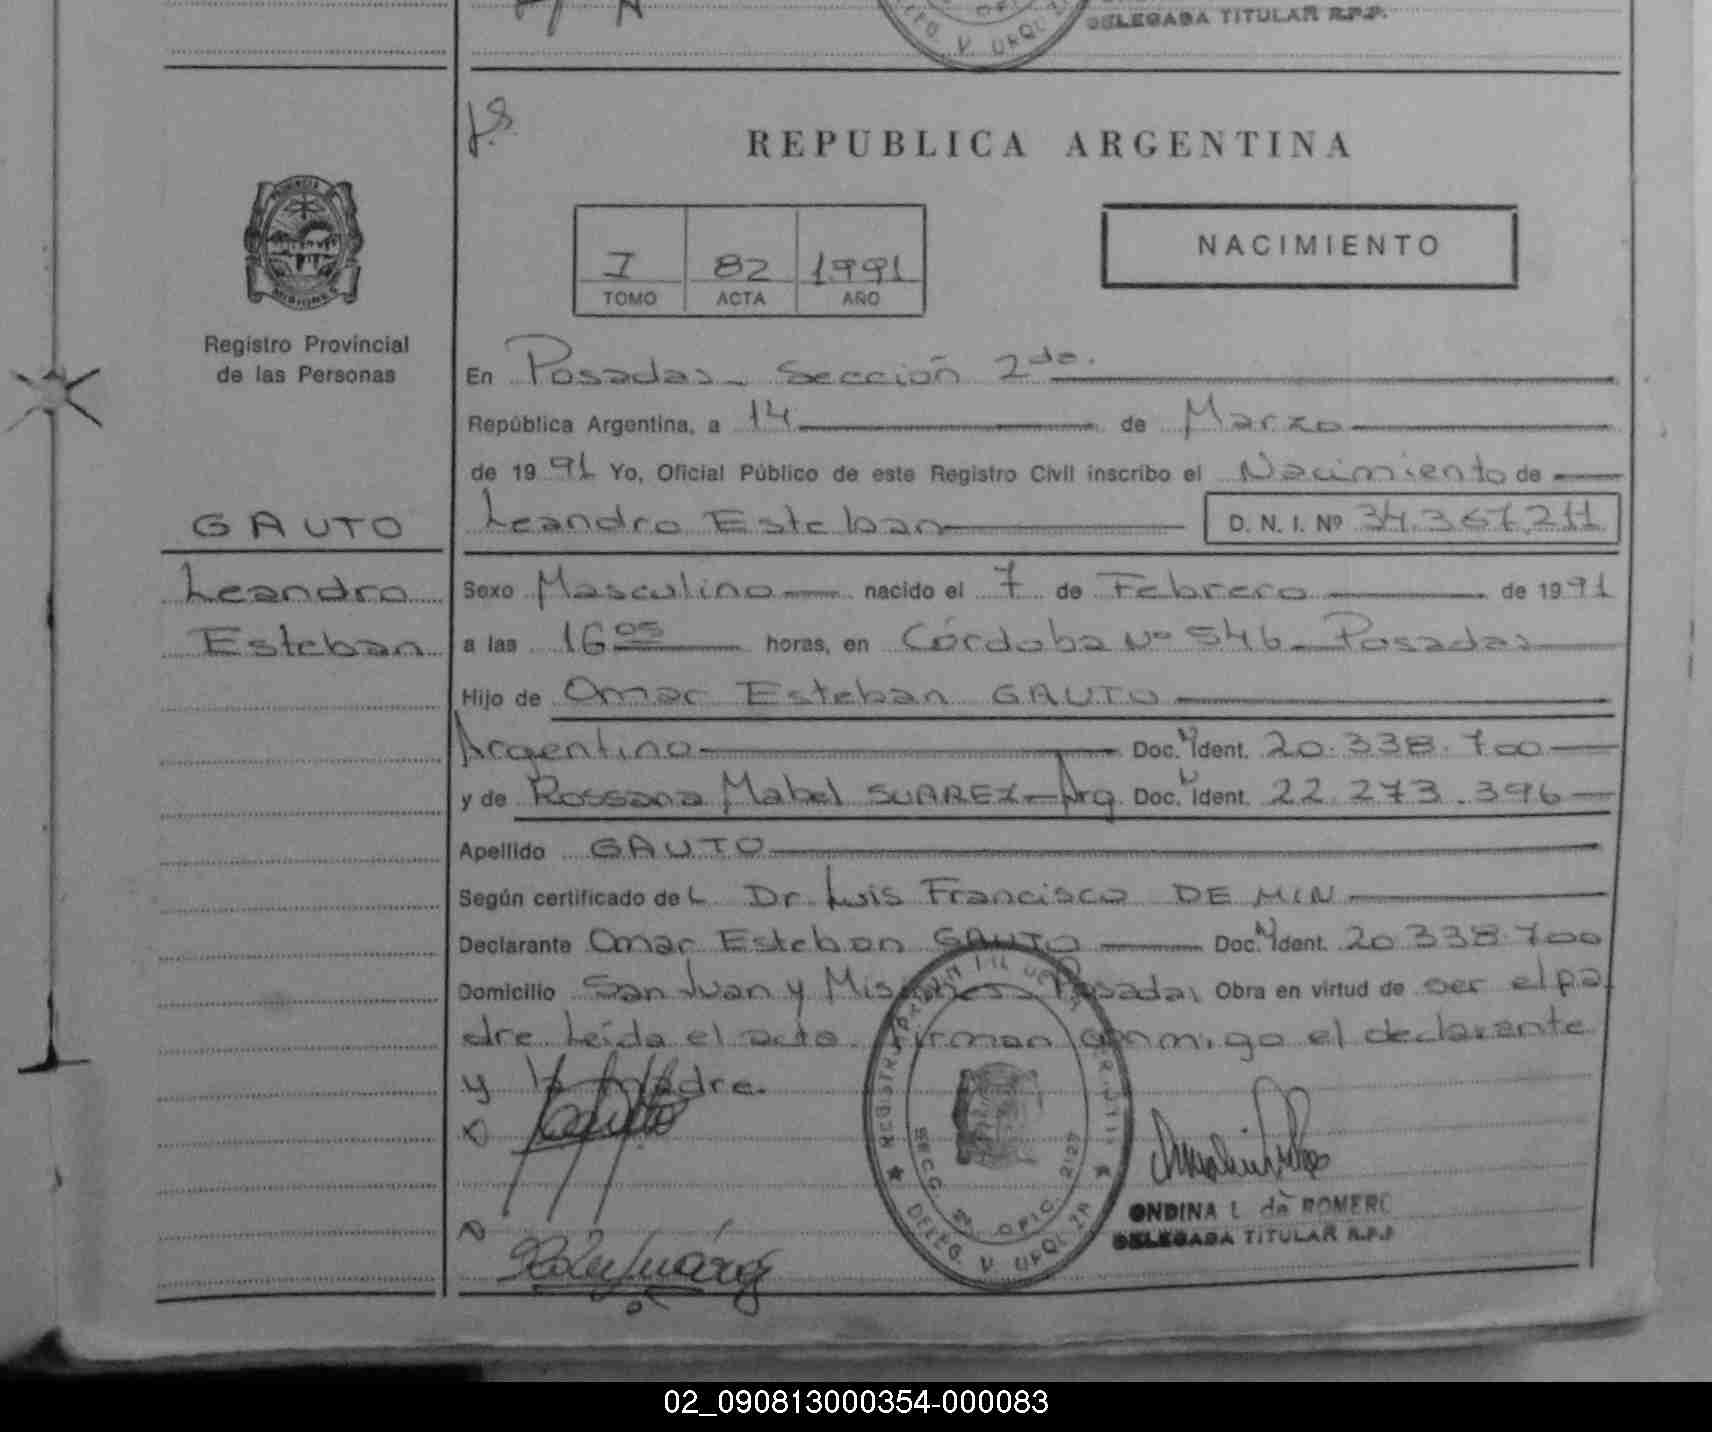 DELEG. V. URQUIZA
DELEGADA TITULAR R.P.P.
REPUBLICA ARGENTINA
PROVINCIA DE
MISIONES
Registro Provincial
de las Personas
I 82 1991
TOMO ACTA AÑO
NACIMIENTO
En Posadas - Sección 2da.
República Argentina, a 14 de Marzo
de 1991 Yo, Oficial Público de este Registro Civil inscribo el Nacimiento de
GAUTO
Leandro Esteban D. N. I. Nº 34.367.211
Leandro
Esteban
Sexo Masculino nacido el 7 de Febrero de 1991
a las 16 05 horas, en Córdoba Nº 546 - Posadas
Hijo de Omar Esteban GAUTO
Argentino Doc. N Ident. 20.338.700
y de Rossana Mabel SUAREZ - Arg. Doc. N Ident. 22.273.396
Apellido GAUTO
Según certificado del Dr. Luis Francisco DE MIN
Declarante Omar Esteban GAUTO Doc. N Ident. 20.338.700
Domicilio San Juan y Misiones - Posadas Obra en virtud de ser el pa
dre. Leída el acta. Firman conmigo el declarante
y la Madre.
SECC. 2ª OFIC. 2127
DELEG. V. URQUIZA
ONDINA L. de ROMERO
DELEGADA TITULAR R.P.P.
02_090813000354-000083